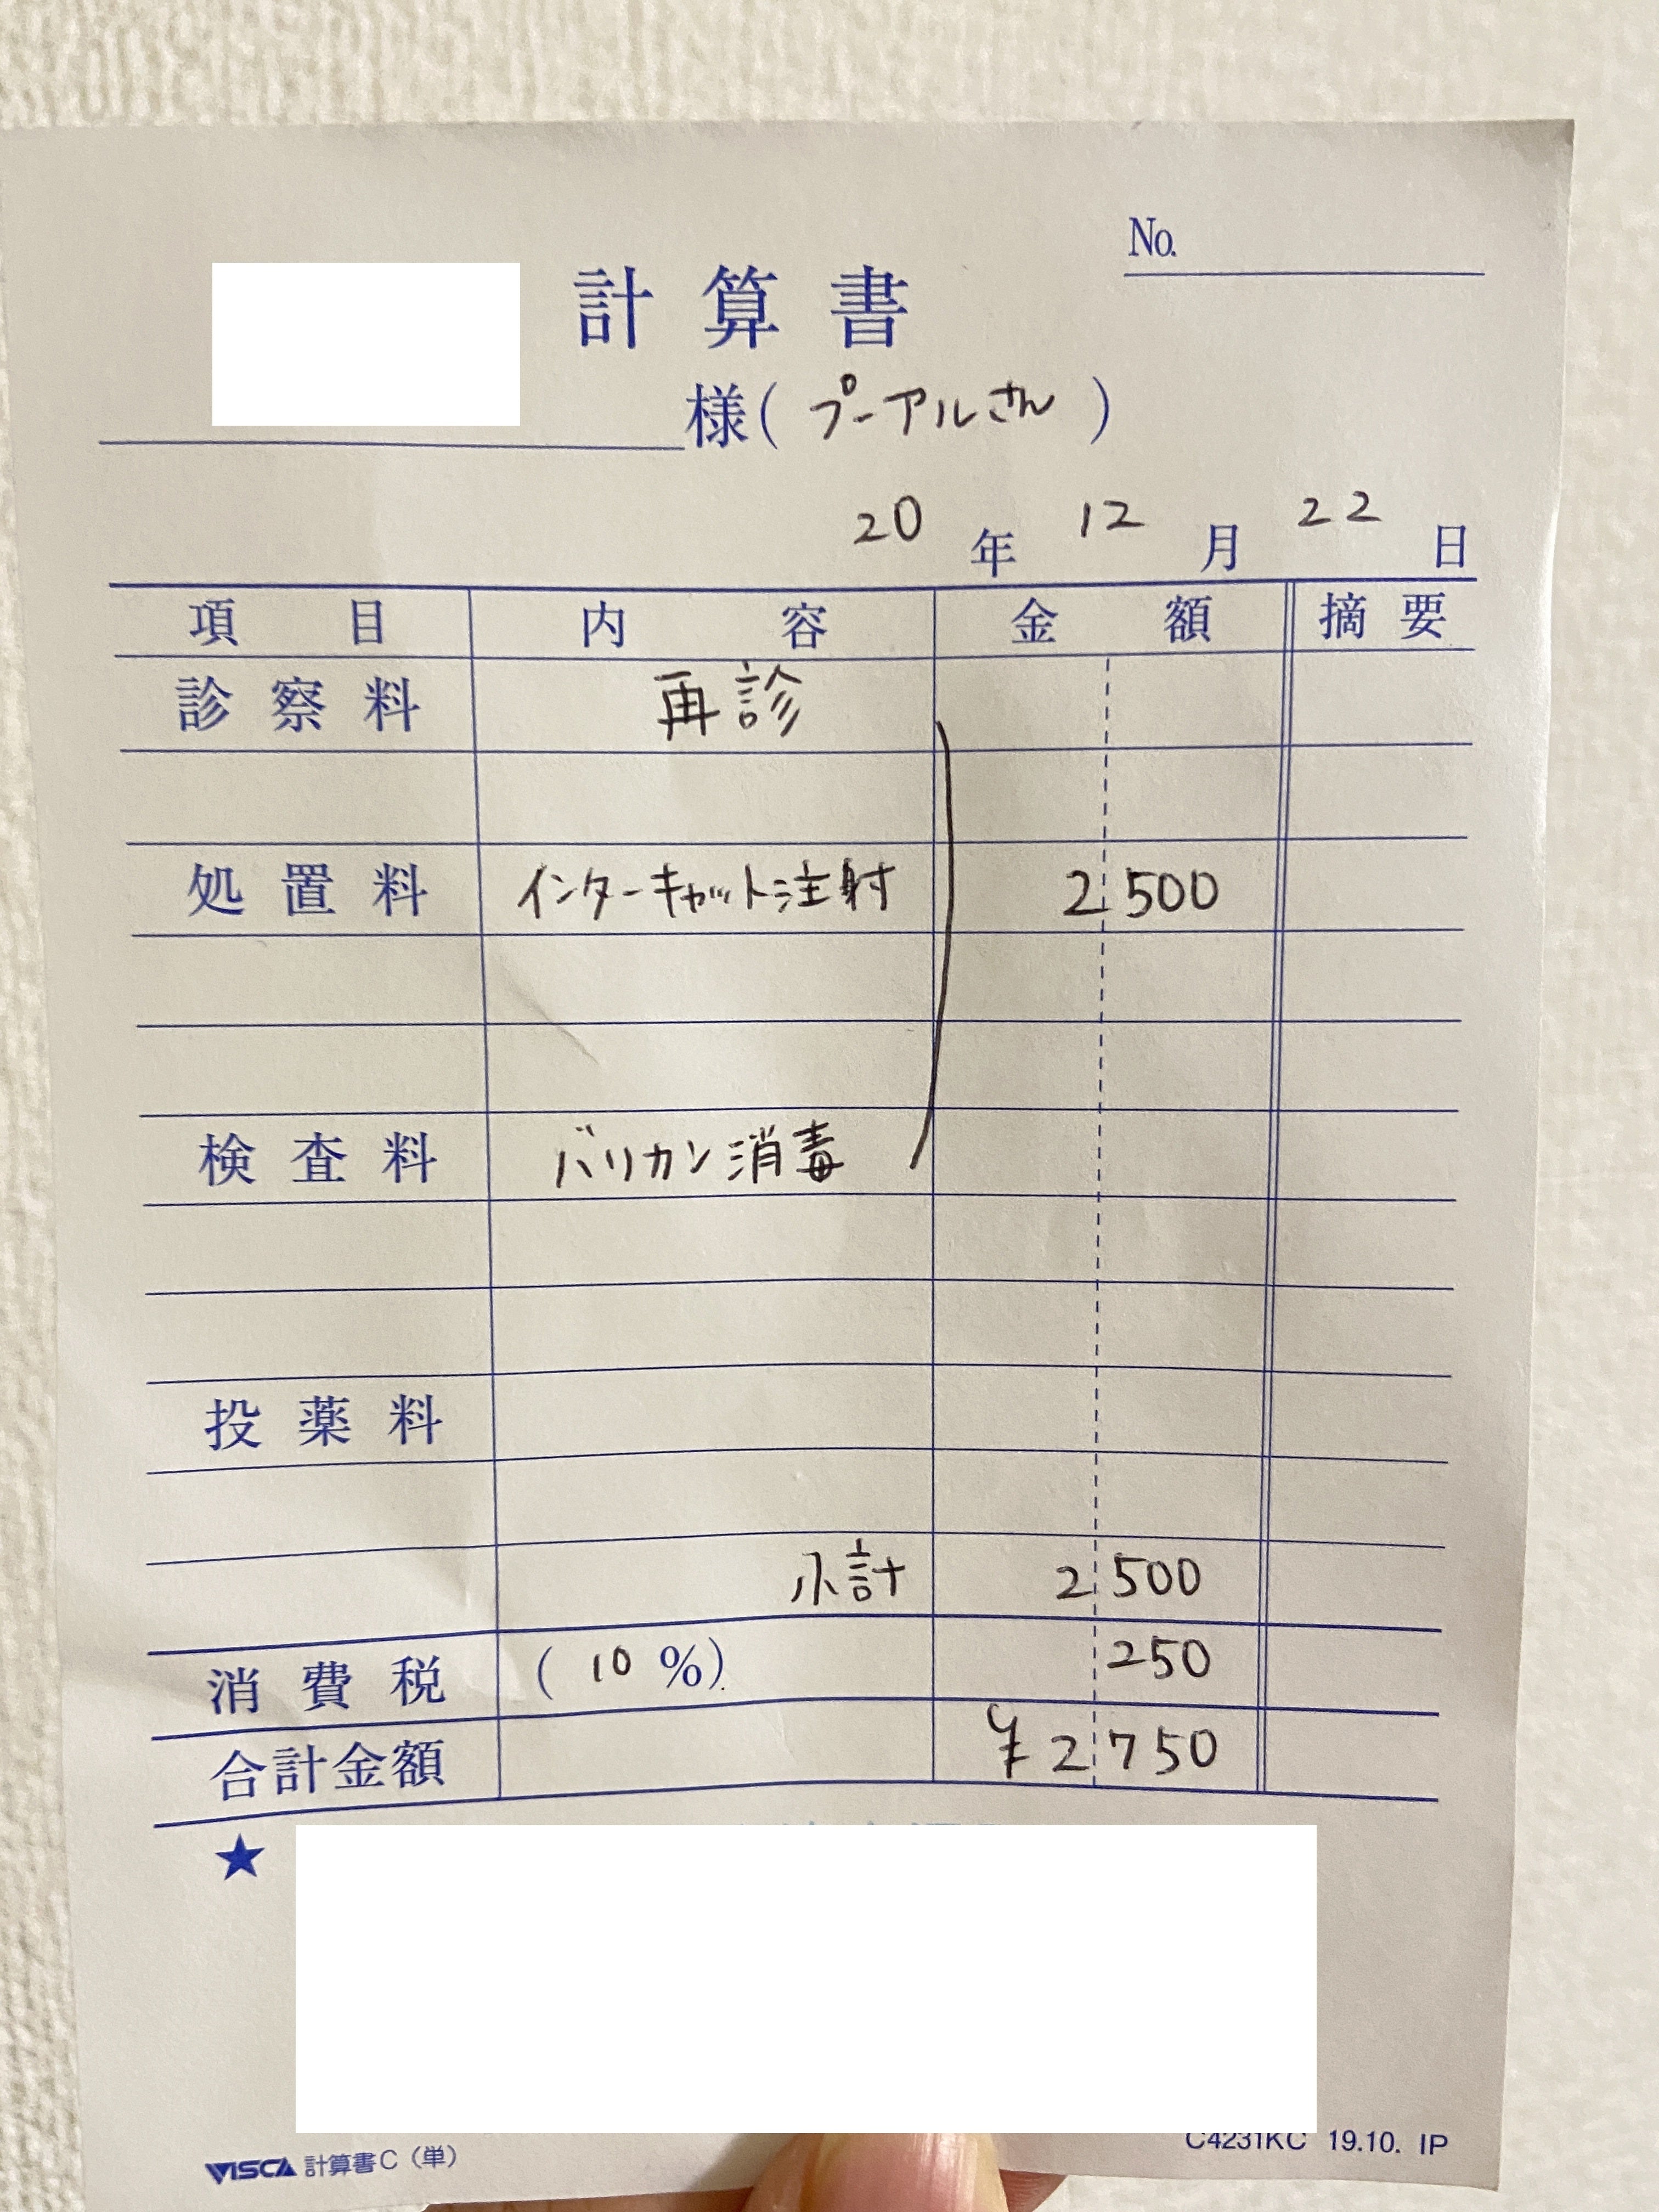 No.
計算書
様(プーアルさん)
20年12月22日
項目 内容 金額 摘要
診察料 再診
処置料 インターキャット注射 2 500
検査料 バリカン消毒
投薬料
小計 2 500
消費税 (10%) 250
合計金額 ¥2 750
★
VISCA 計算書C(単) C4231KC 19.10. IP